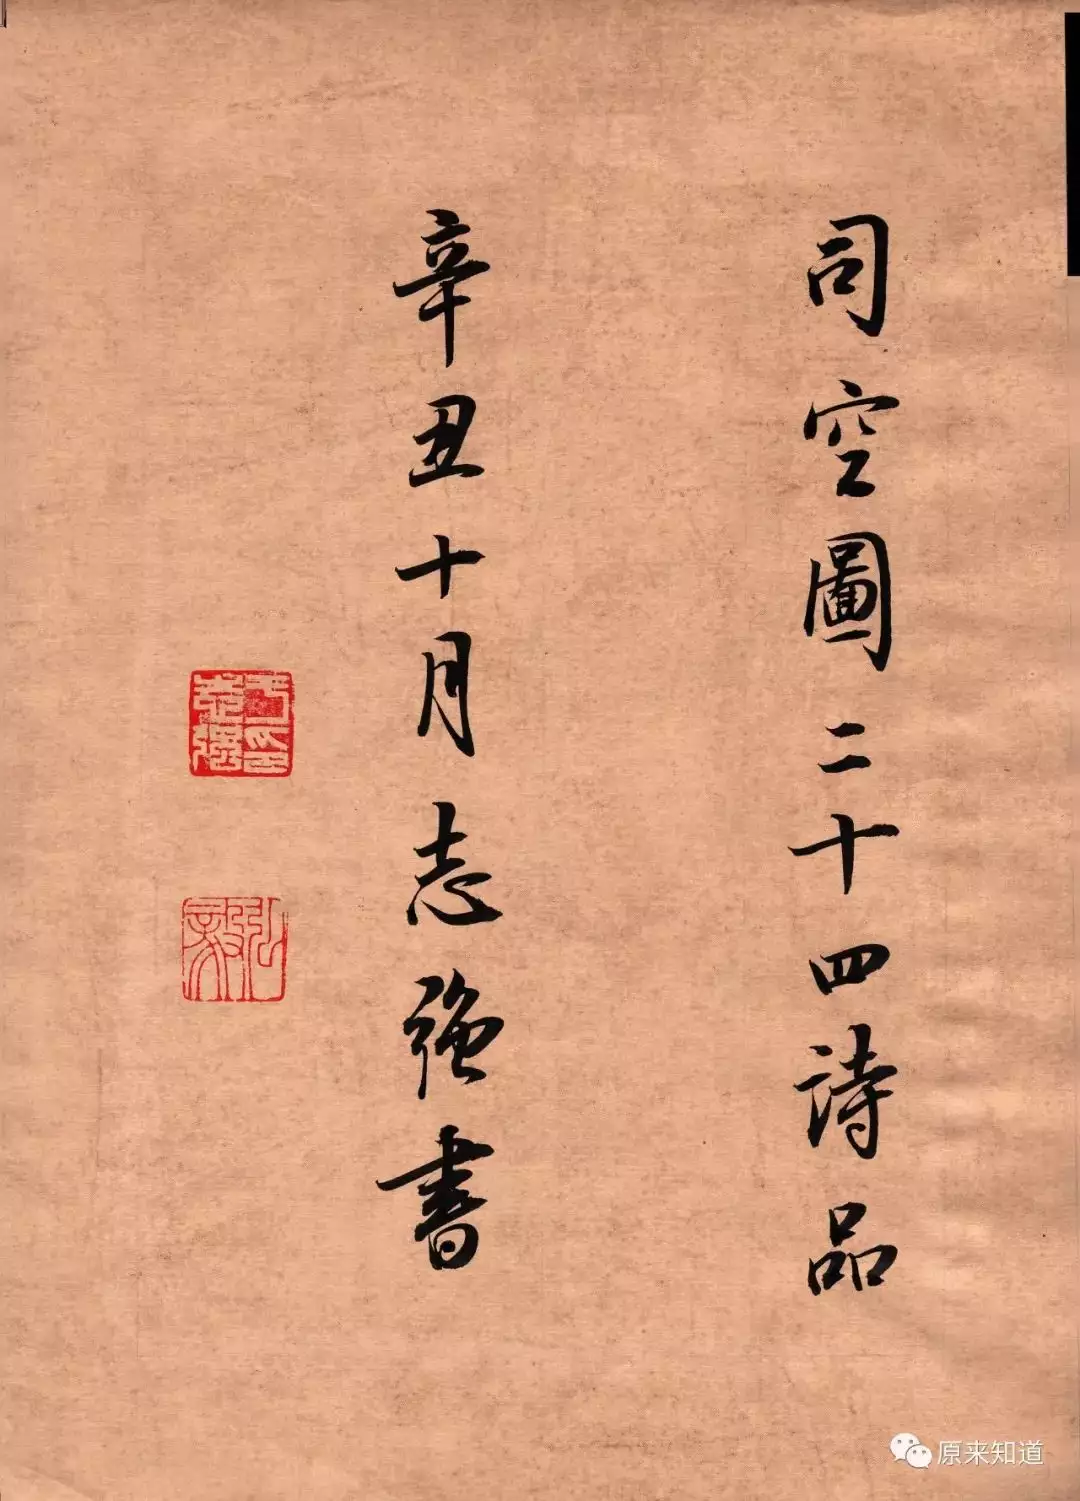 司空圖二十四詩品
辛丑十月志強書
弘毅
原来知道